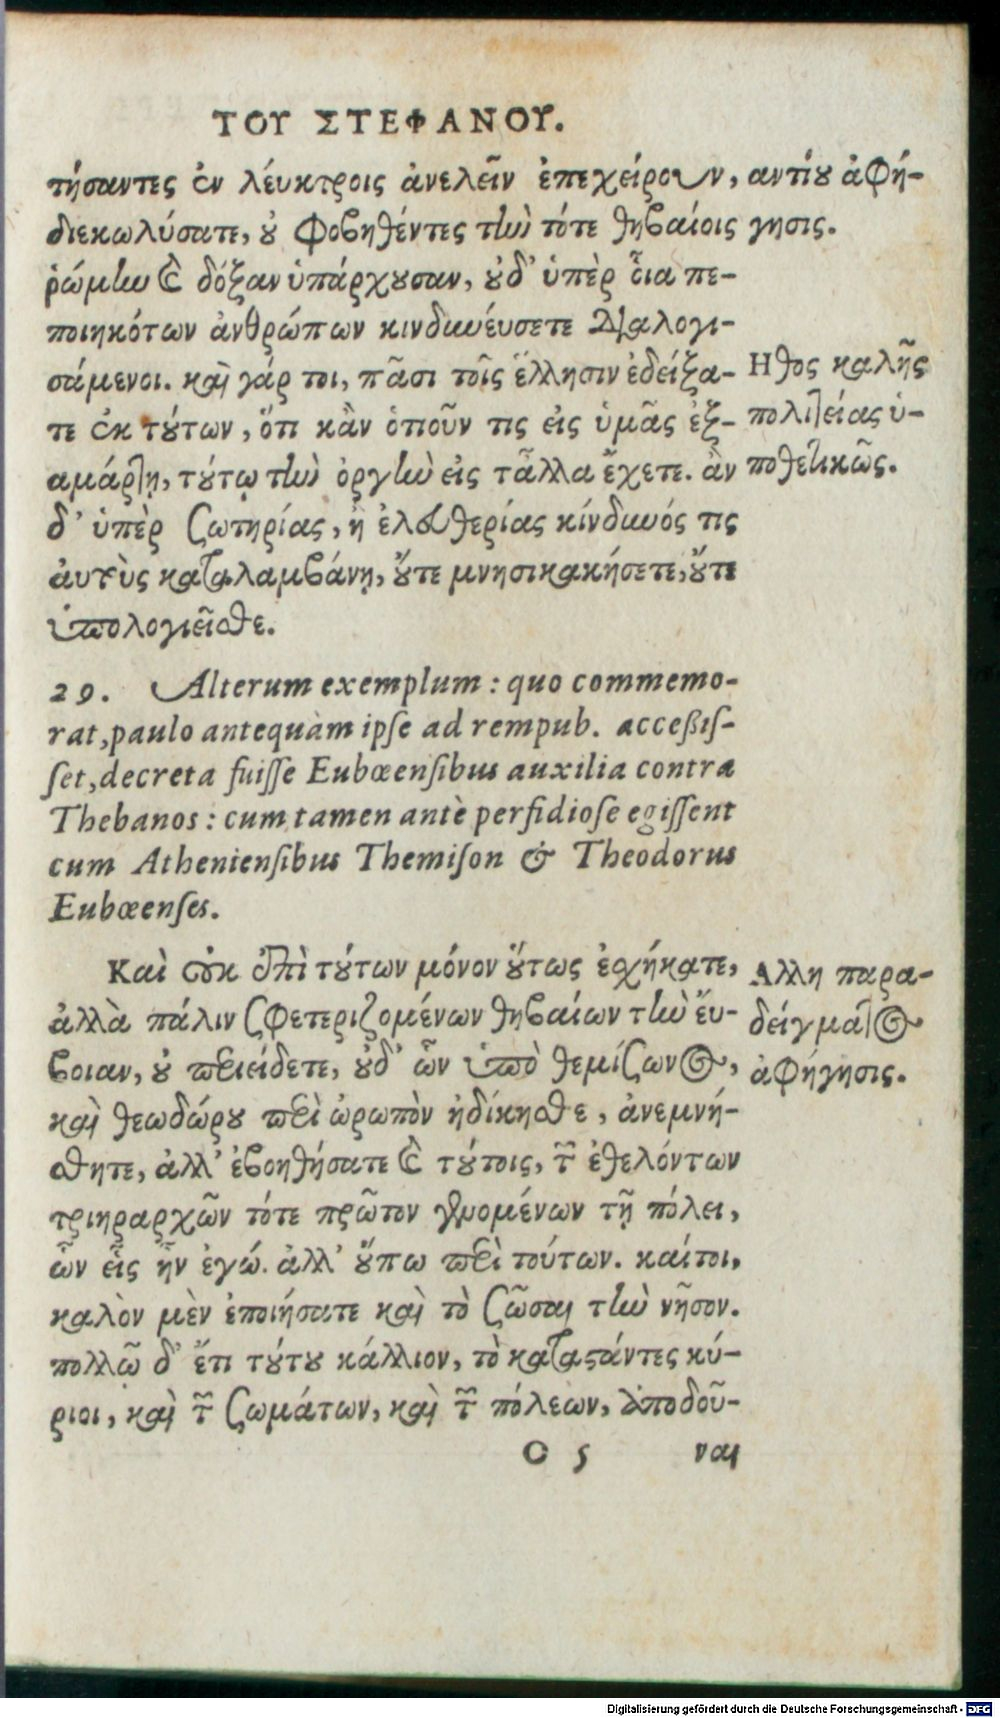 ΤΟΥ ΣΤΕΦΑΝΟΥ.
τήσαντες ἐν λέυκτροις ἀνελεῖν ἐπεχείρουν,
διεκωλύσατε, ȣ φοβηθέντες τὴν τότε θηβαίοις
ῥώμην καὶ δόξαν ὑπάρχȣσαν, ȣδ᾽ ὑπὲρ οἷα πε-
ποιηκότων ἀνθρώπων κινδυνέυσετε διαλογι-
σάμενοι. καὶ γάρ τοι, πᾶσι τοῖς ἕλλησιν ἐδείξα-
τε ἐκ τȣ́των, ὅτι κἂν ὁτιοῦν τις εἰς ὑμᾶς ἐξ-
αμάρτῃ, τȣ́τῳ τὴν ὀργὴν εἰς τἆλλα ἔχετε. ἂν
δ᾽ ὑπὲρ σωτηρίας, ἢ ἐλευθερίας κίνδυνός τις
ἀυτὺς καταλαμβάνῃ, ȣ̓́τε μνησικακήσετε, ȣ̓́τε
ὑπολογιεῖσθε.
αντίȣ ἀφή-
γησις.
Ηθος καλῆς
πολιτείας ὑ-
ποθετικῶς.
29. Alterum exemplum: quo commemo-
rat, paulo antequàm ipſe ad rempub. acceßiſ-
ſet, decreta fuiſſe Eubœenſibus auxilia contra
Thebanos: cum tamen antè perfidioſe egiſſent
cum Athenienſibus Themiſon & Theodorus
Eubœenſes.
Καὶ οὐκ ἐπὶ τȣ́των μόνον ȣ̔́τως ἐσχήκατε,
ἀλλὰ πάλιν σφετεριζομένων θηβαίων τὴν ἔυ-
βοιαν, ȣ περιείδετε, ȣδ᾽ ὧν ὑπὸ θεμίσωνος,
καὶ θεωδώρȣ περὶ ὠρωπὸν ἠδίκησθε, ἀνεμνή-
σθητε, ἀλλ᾽ ἐβοηθήσατε καὶ τȣ́τοις, τῶν ἐθελόντων
τριηραρχῶν τότε πρῶτον γενομένων τῇ πόλει,
ὧν εἷς ἦν ἐγώ. ἀλλ᾽ ȣ̓́πω περὶ τούτων. καίτοι,
καλὸν μὲν ἐποιήσατε καὶ τὸ σῶσαι τὴν νῆσον.
πολλῷ δ᾽ ἔτι τȣ́τȣ κάλλιον, τὸ καταϛάντες κύ-
ριοι, καὶ τῶν σωμάτων, καὶ τῶν πόλεων, ἀποδοῦ-
Αλλη παρα-
δείγματος
ἀφήγησις.
O 5 ναι
Digitalisierung gefördert durch die Deutsche Forschungsgemeinschaft - DFG